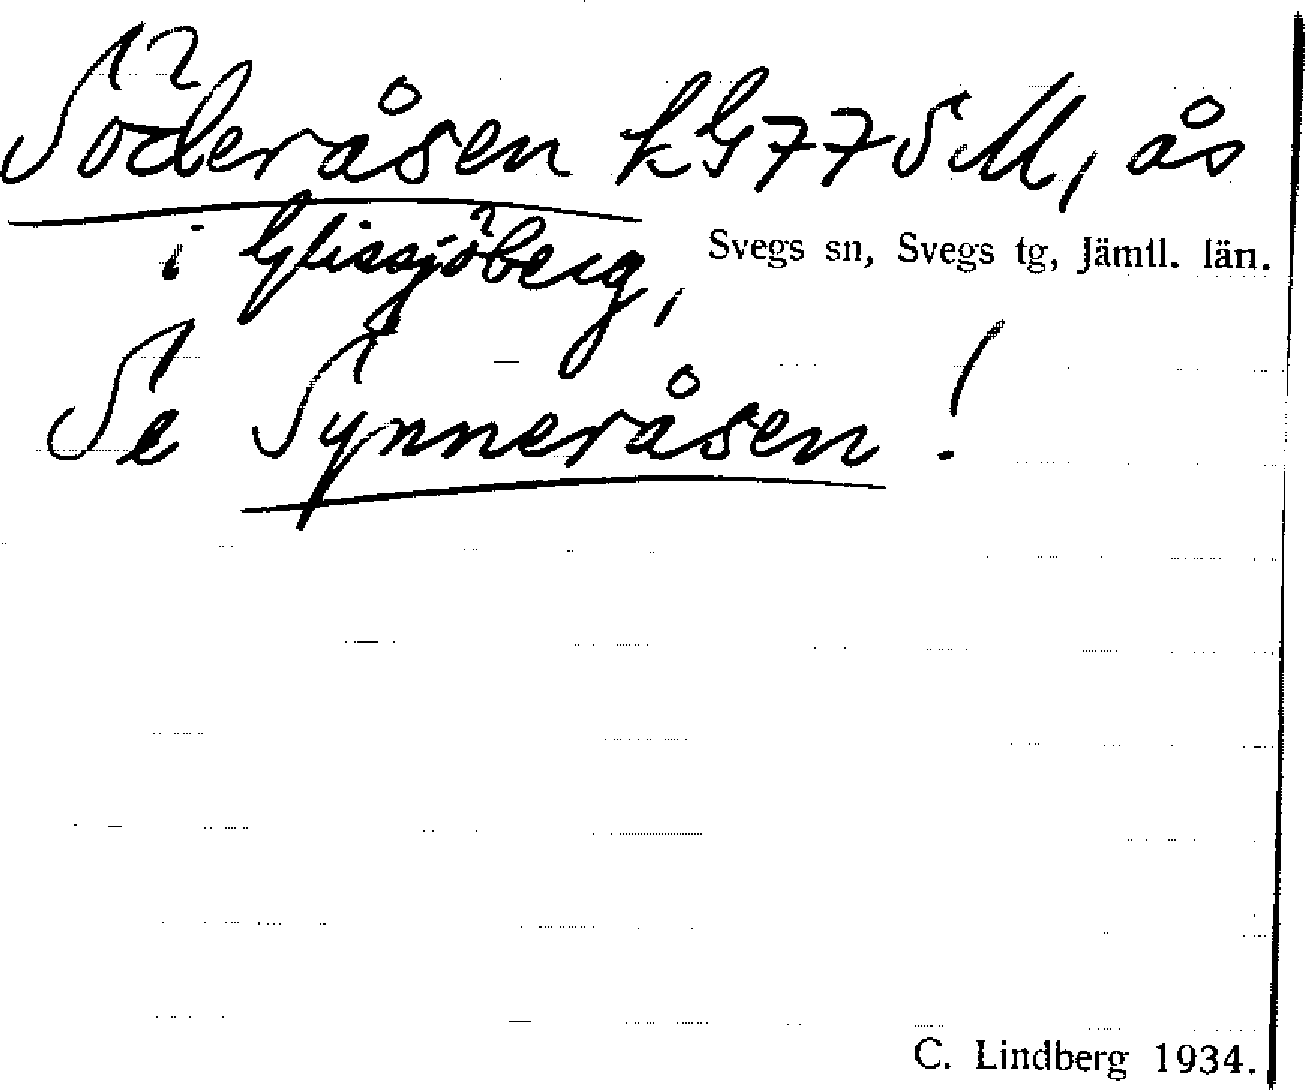 Söderåsen kG77SM, ås
i Glissjöberg, Svegs sn, Svegs tg, Jämtl. län.
Se Synneråsen!
C. Lindberg 1934.